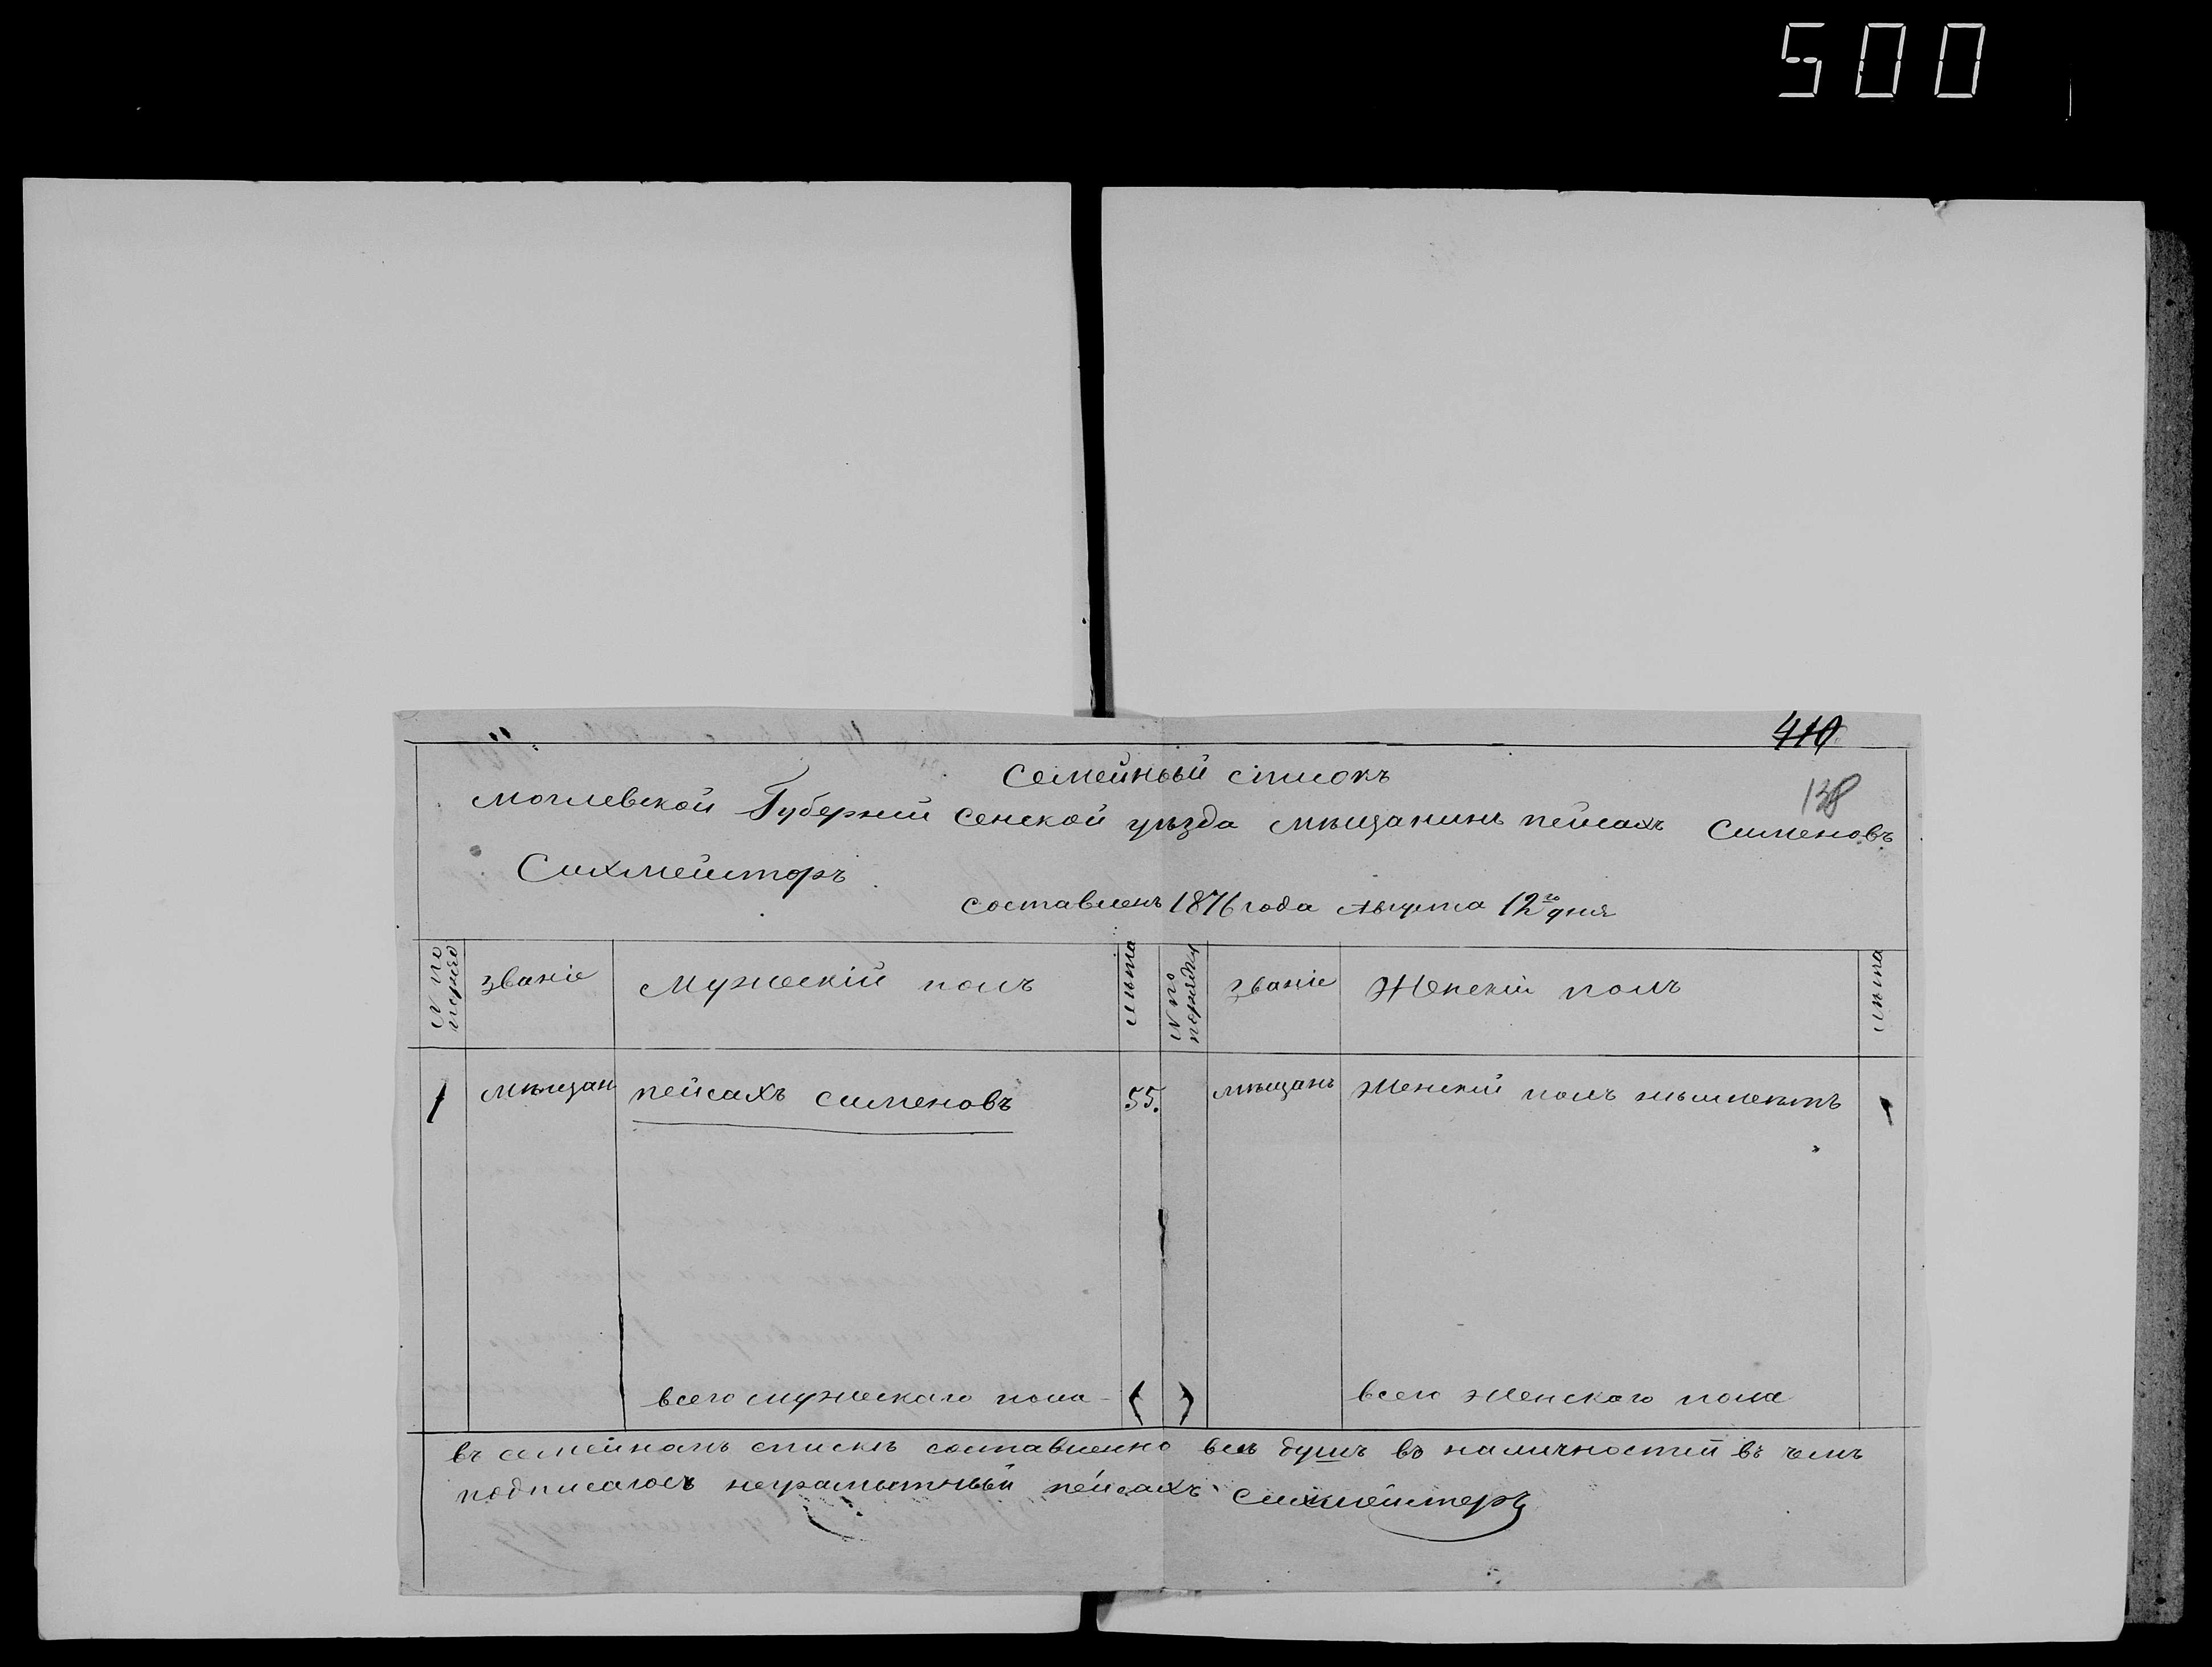 500
410
Семейный списокъ
138
Могилевской Губерний Сенской уѣзда мѣщанинъ пейсахъ Сименовъ
Сихмейторъ
составленъ 1876 года Августа 12го дня
№ по порядку званіе Мужескій полъ лѣта № по порядку званіе Женскій полъ лѣта
1 мѣщан пейсахъ сименовъ 55. мѣщанъ Женскій полъ
всего мужескаго пола всего женскаго пола
въ семейномъ спискѣ составленно всѣ душъ въ наличностий въ чемъ
подписалось неграмытный пейсахъ сихмейтеръ